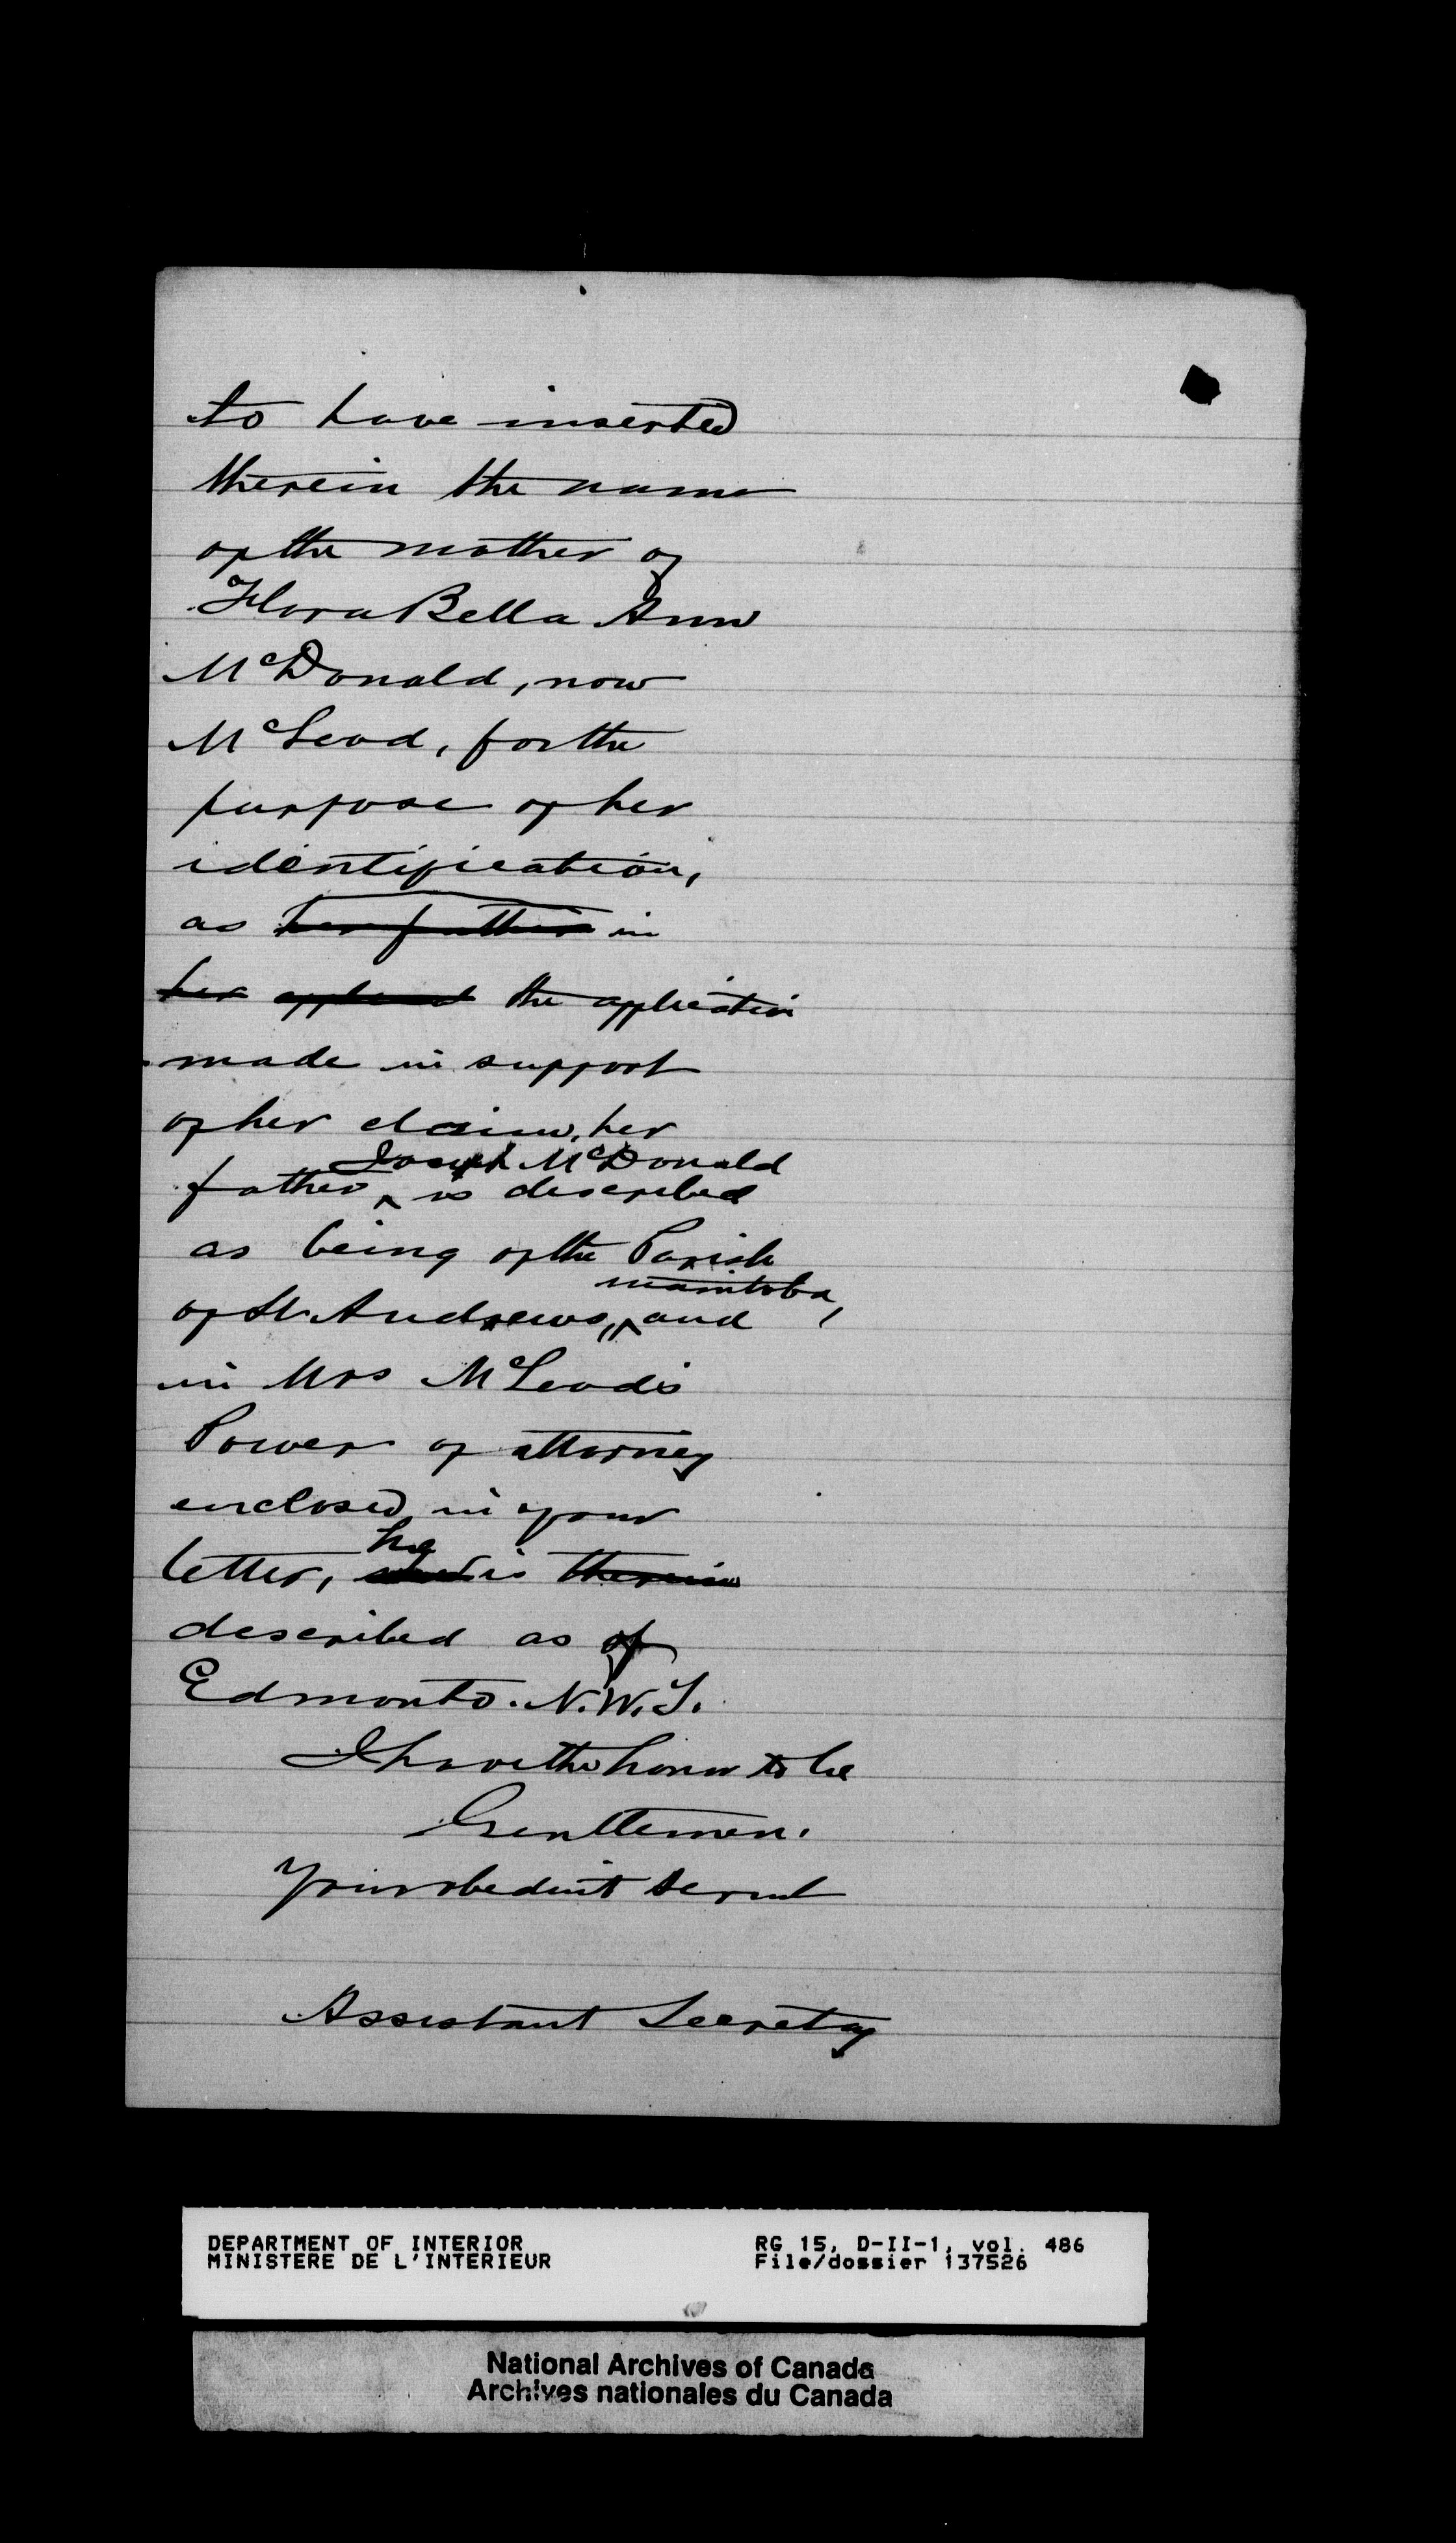 to have inserted
therein the name
of the mother of
Flora Bella Ann
McDonald, now
McLeod, for the
purpose of her
identification,
as her father in
her the application
made in support
of her claim, her
Joseph McDonald
father ^ is described
as being of the Parish
manitoba,
of St. Andrews, ^ and
in Mrs McLeod's
Power of attorney
enclosed in your
he
letter, is therein
described as of
Edmonto. N.W.T.
I have the honor to be
Gentlemen.
Your obedient Servt
Assistant Secretary
DEPARTMENT OF INTERIOR RG 15, D-II-1, vol. 486
MINISTERE DE L'INTERIEUR File/dossier 137526
National Archives of Canada
Archives nationales du Canada